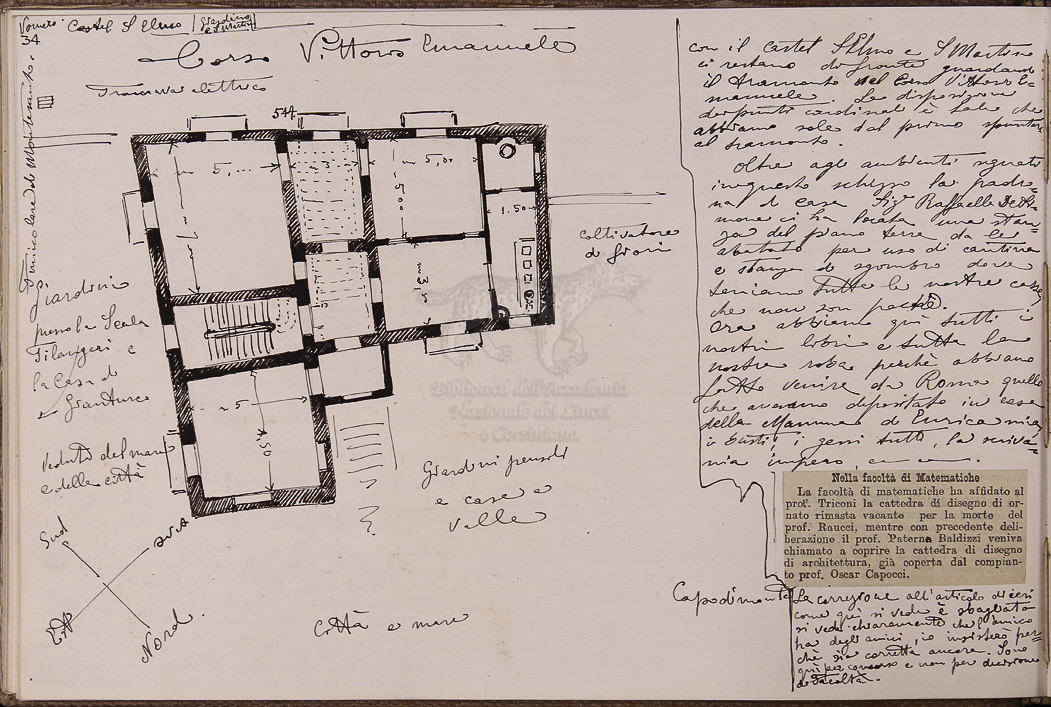 Vomero Castel S Elmo Giardino
34
Corso Vittorio Emanuele
Tramvai elettrico
544
Funicolare di Montesanto
5,
5,00
500
1.50
3
Giardino
presso la Scala
Filangeri e
la Casa di
Granturco
coltivatore
di fiori
5
4,50
Veduta del mare
e della città
Giardini pensili
e case a
Valle
Sud
Est
Nord.
Città e mare
Capodimonte
con il Castel S Elmo e S Martino
ci restano di fronte guardando
il tramonto del Corso Vittorio E=
manuele. La disposizione
dei punti cardinali è tale che
abbiamo sole dal primo spuntare
al tramonto.
Oltre agli ambienti segnati
in questo schizzo la padro=
na di casa Sig.ra Raffaella
ci ha una stan=
za del piano terra da
per uso di cantina
e stanza di sgombro dove
teniamo tutte le nostre casse
che non son poche.
Ora abbiamo qui tutti i
nostri libri e tutta la
nostra roba perchè abbiamo
fatto venire da Roma quello
che avevamo depositato in casa
della Mamma di Enrica mia
i busti, i gessi tutto, la scriva=
nia impero,
Nella facoltà di Matematiche
La facoltà di matematiche ha affidato al
prof. Triconi la cattedra di disegno di or-
nato rimasta vacante per la morte del
prof. Raucci, mentre con precedente deli-
berazione il prof. Paterna Baldizzi veniva
chiamato a coprire la cattedra di disegno
di architettura, già coperta dal compian-
to prof. Oscar Capocci.
La correzione all'articolo di ieri
come qui si vede è sbagliata
si vede chiaramente che l'amico
ha degli amici, io insisterò per=
chè sia corretta ancora. Sono
qui per concorso e non per decisione
di Facoltà.
Biblioteca dell'Accademia
Nazionale dei Lincei
e Corsiniana